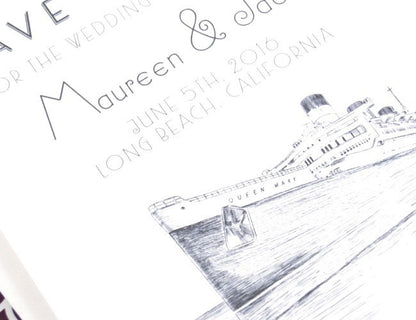 AVE
OR THE WEDDING
Maureen & Ja
JUNE 5TH, 2016
LONG BEACH, CALIFORNIA
QUEEN MARY